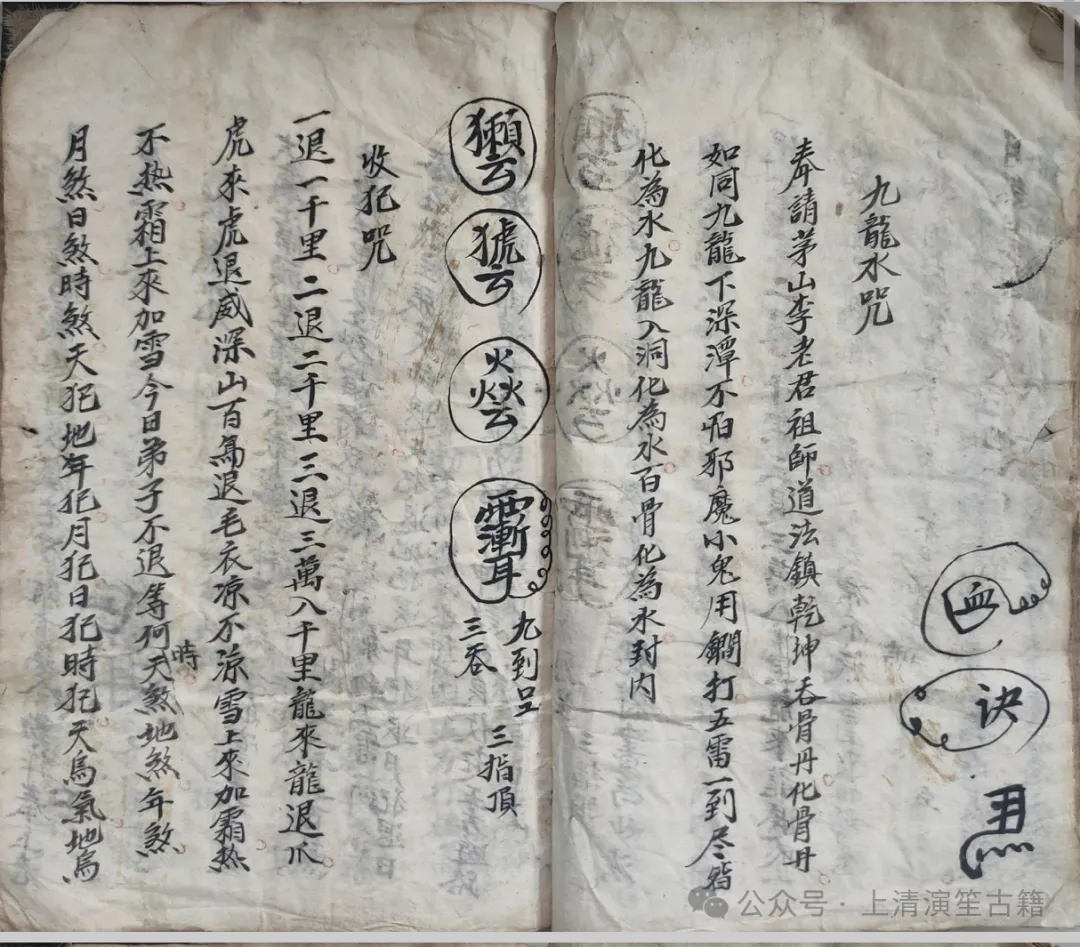 血
決
馬
九龍水咒
奉請茅山李老君祖師道法鎮乾坤吞骨丹化骨丹
如同九龍下深潭不怕邪魔小鬼用鐧打五雷一到尽皆
化為水九龍入洞化為水百骨化為水封内
九到 三指頂
三吞
收犯咒
一退一千里二退二千里三退三萬八千里龍來龍退爪
虎來虎退威深山百鳥退毛衣凉不凉雪上來加霜热
不热霜上來加雪今日弟子不退等何時天煞地煞年煞
月煞日煞時煞天犯地年犯月犯日犯時犯天烏氣地烏
公众号·上清演笙古籍